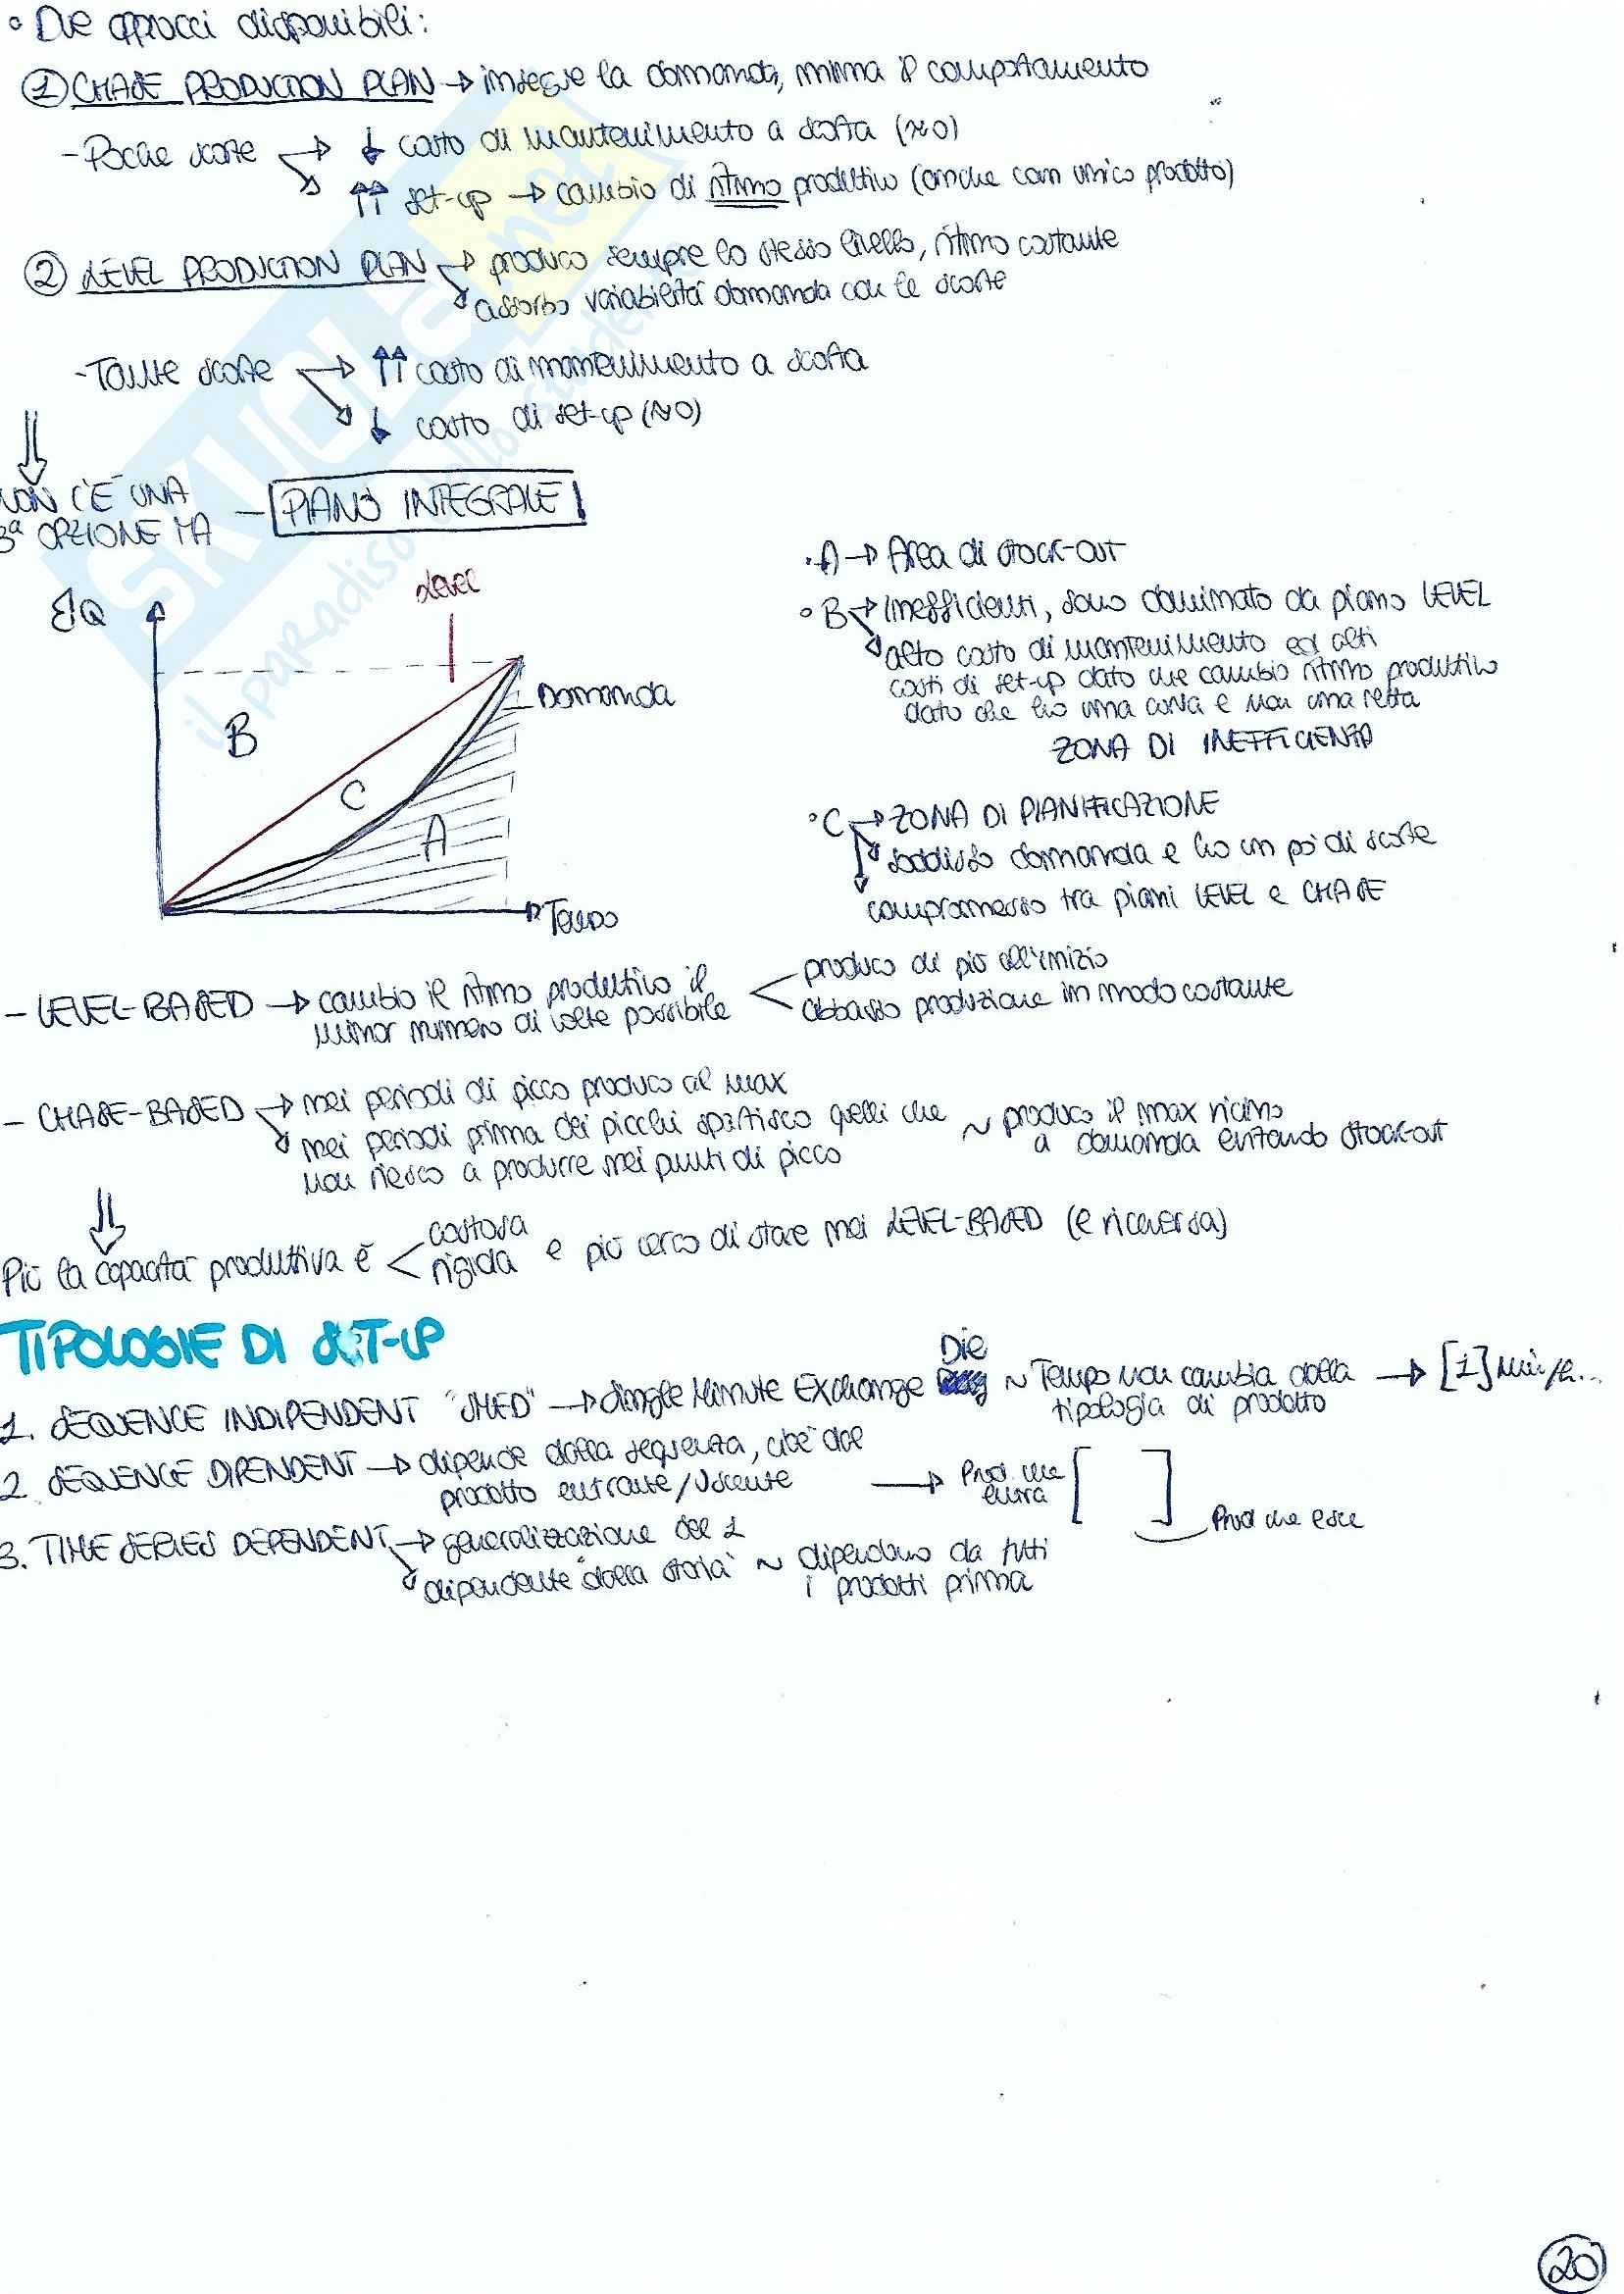 ° Due approcci disponibili:
① CHASE PRODUCTION PLAN → insegue la domanda, mima il comportamento
- Poche scorte → ↓ costo di mantenimento a scorta (≈0)
↘ ↑↑ set-up → cambio di ritmo produttivo (anche con unico prodotto)
② LEVEL PRODUCTION PLAN → produco sempre lo stesso livello, ritmo costante
↘ assorbo variabilità domanda con le scorte
- Tante scorte → ↑↑ costo di mantenimento a scorta
↘ ↓ costo di set-up (≈0)
⇓
NON C'È UNA
3ª OPZIONE MA - PIANO INTEGRALE
Level
Q
Domanda
B
C
A
Tempo
· A → Area di stock-out
° B → Inefficienti, sono dominato da piano LEVEL
↘ alto costo di mantenimento ed alti
costi di set-up dato che cambio ritmo produttivo
dato che ho una curva e non una retta
ZONA DI INEFFICIENZA
° C → ZONA DI PIANIFICAZIONE
↘ soddisfo domanda e ho un po' di scorte
↓ compromesso tra piani LEVEL e CHASE
- LEVEL-BASED → cambio il ritmo produttivo il
minor numero di volte possibile
produco di più all'inizio
abbasso produzione in modo costante
- CHASE-BASED → nei periodi di picco produco al max
↘ nei periodi prima dei picchi spartisco quelli che
non riesco a produrre nei punti di picco
~ produco il max vicino
a domanda evitando stock-out
⇓
Più la capacità produttiva è < costosa
rigida e più cerco di stare nei LEVEL-BASED (e viceversa)
TIPOLOGIE DI SET-UP
1. SEQUENCE INDIPENDENT "SMED" → Single Minute Exchange Die ~ Tempo non cambia dalla → [1] min/h...
tipologia di prodotto
2. SEQUENCE DIPENDENT → dipende dalla sequenza, cioè dal
prodotto entrante/uscente → Prod. che
entra [ ] Prod che esce
3. TIME SERIES DEPENDENT → generalizzazione del 2
↘ dipendente "dalla storia" ~ dipendono da tutti
i prodotti prima
20
SKUOLA.net
il paradiso dello studente